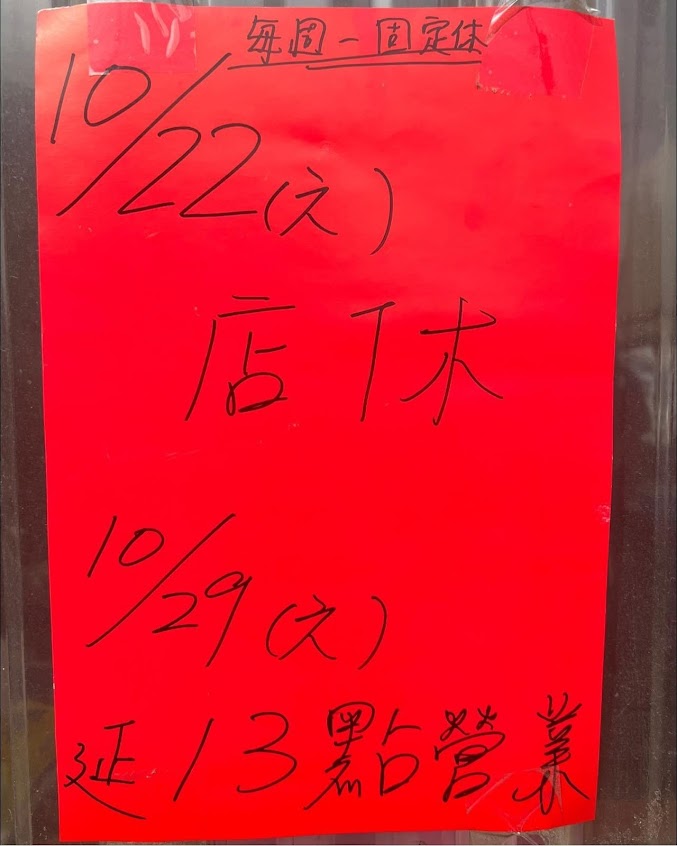 每周一固定休
10/22(六)
店休
10/29(六)
延13點營業